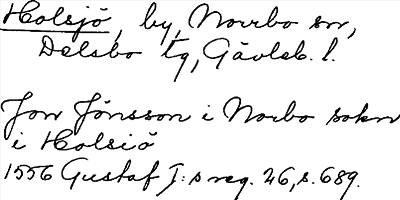 Holsjö, by, Norrbo sn,
Delsbo tg, Gävleb. l.
Jon Jönsson i Norbo sokn
i Holsiö
1556 Gustaf I:s reg. 26, s. 689.